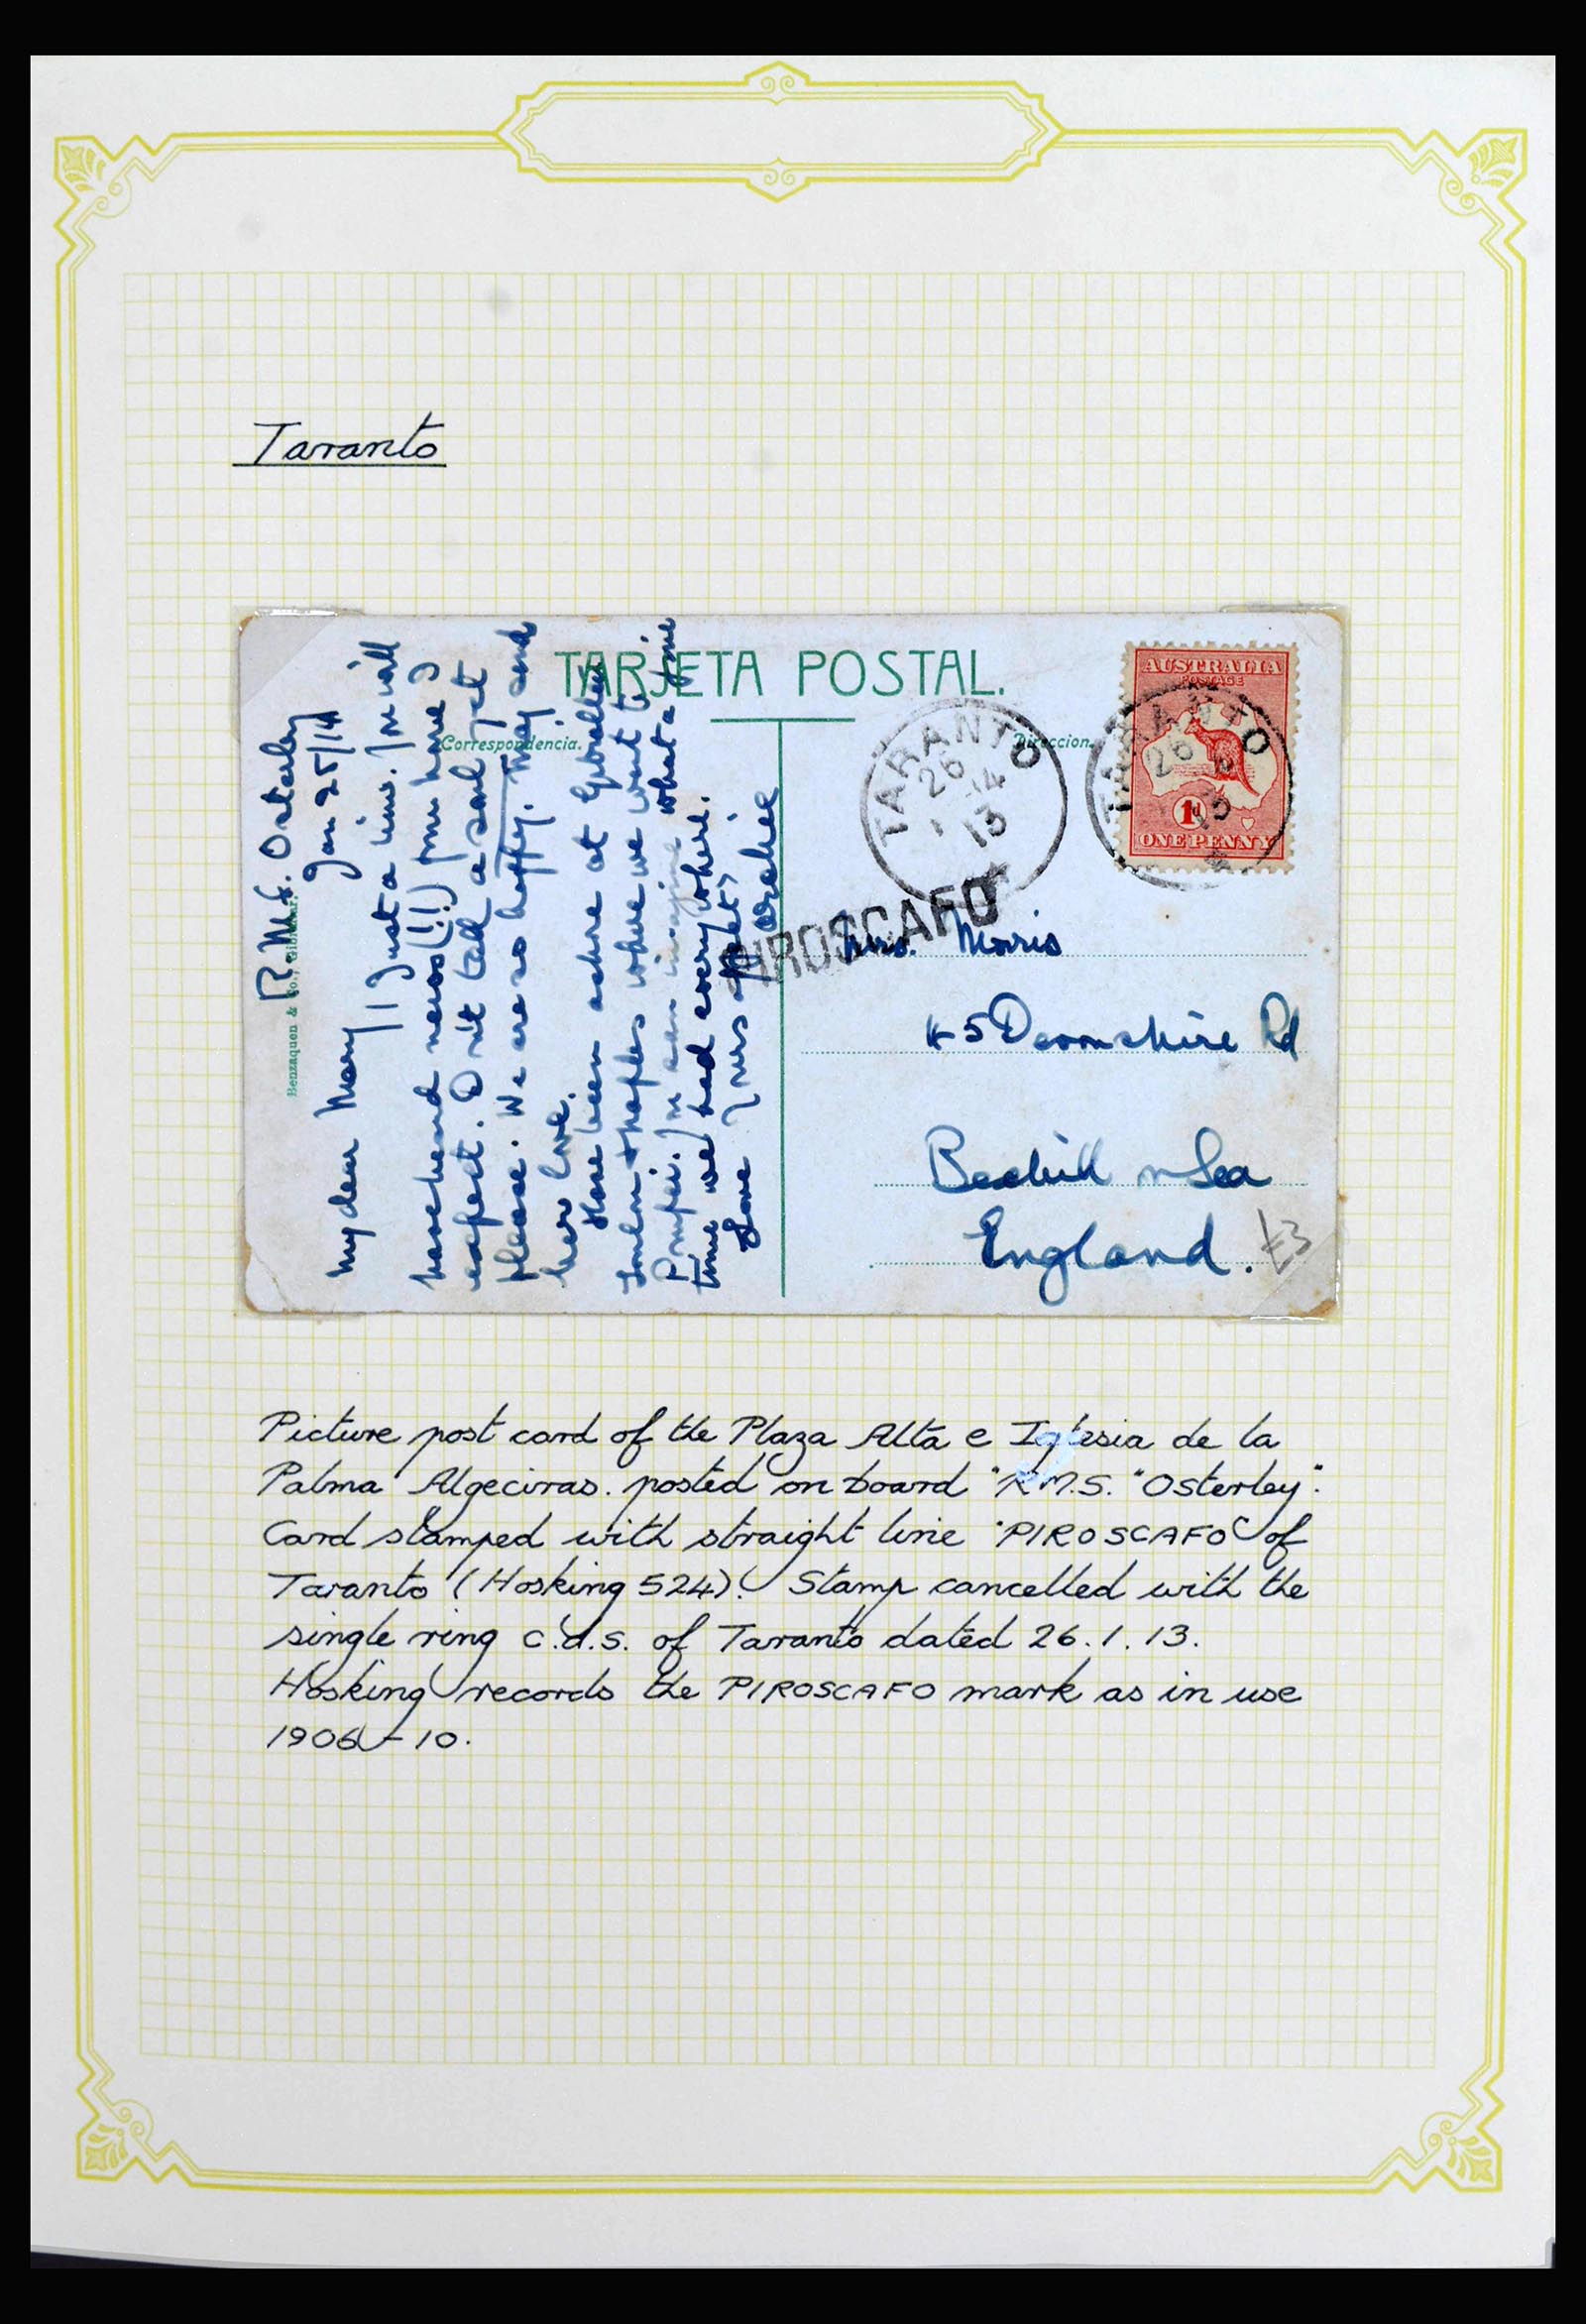 Taranto
TARJETA POSTAL.
Correspondencia.
Direccion.
Benzaquen & Co., Gibraltar.
R.M.S. Osterley
Jan 25/14
My dear Mary
Just a line. You will
have heard news (!!) from home I
expect. Don't tell a soul yet
please. We are so happy. May send
her love.
Have been ashore at Gibraltar
Toulon & Naples where we went to
Pompei. You can imagine what a fine
time we had everywhere.
Love yrs
AUSTRALIA
POSTAGE
1d
ONE PENNY
TARANTO
26
1
14
13
TARANTO
26
13
PIROSCAFO
Mrs. Morris
45 Devonshire Rd
Bexhill on Sea
England.
£3
Picture post card of the Plaza Alta e Iglesia de la
Palma Algeciras. posted on board "R.M.S. "Osterley".
Card stamped with straight line "PIROSCAFO" of
Taranto (Hosking 524). Stamp cancelled with the
single ring c.d.s. of Taranto dated 26.1.13.
Hosking records the PIROSCAFO mark as in use
1906-10.